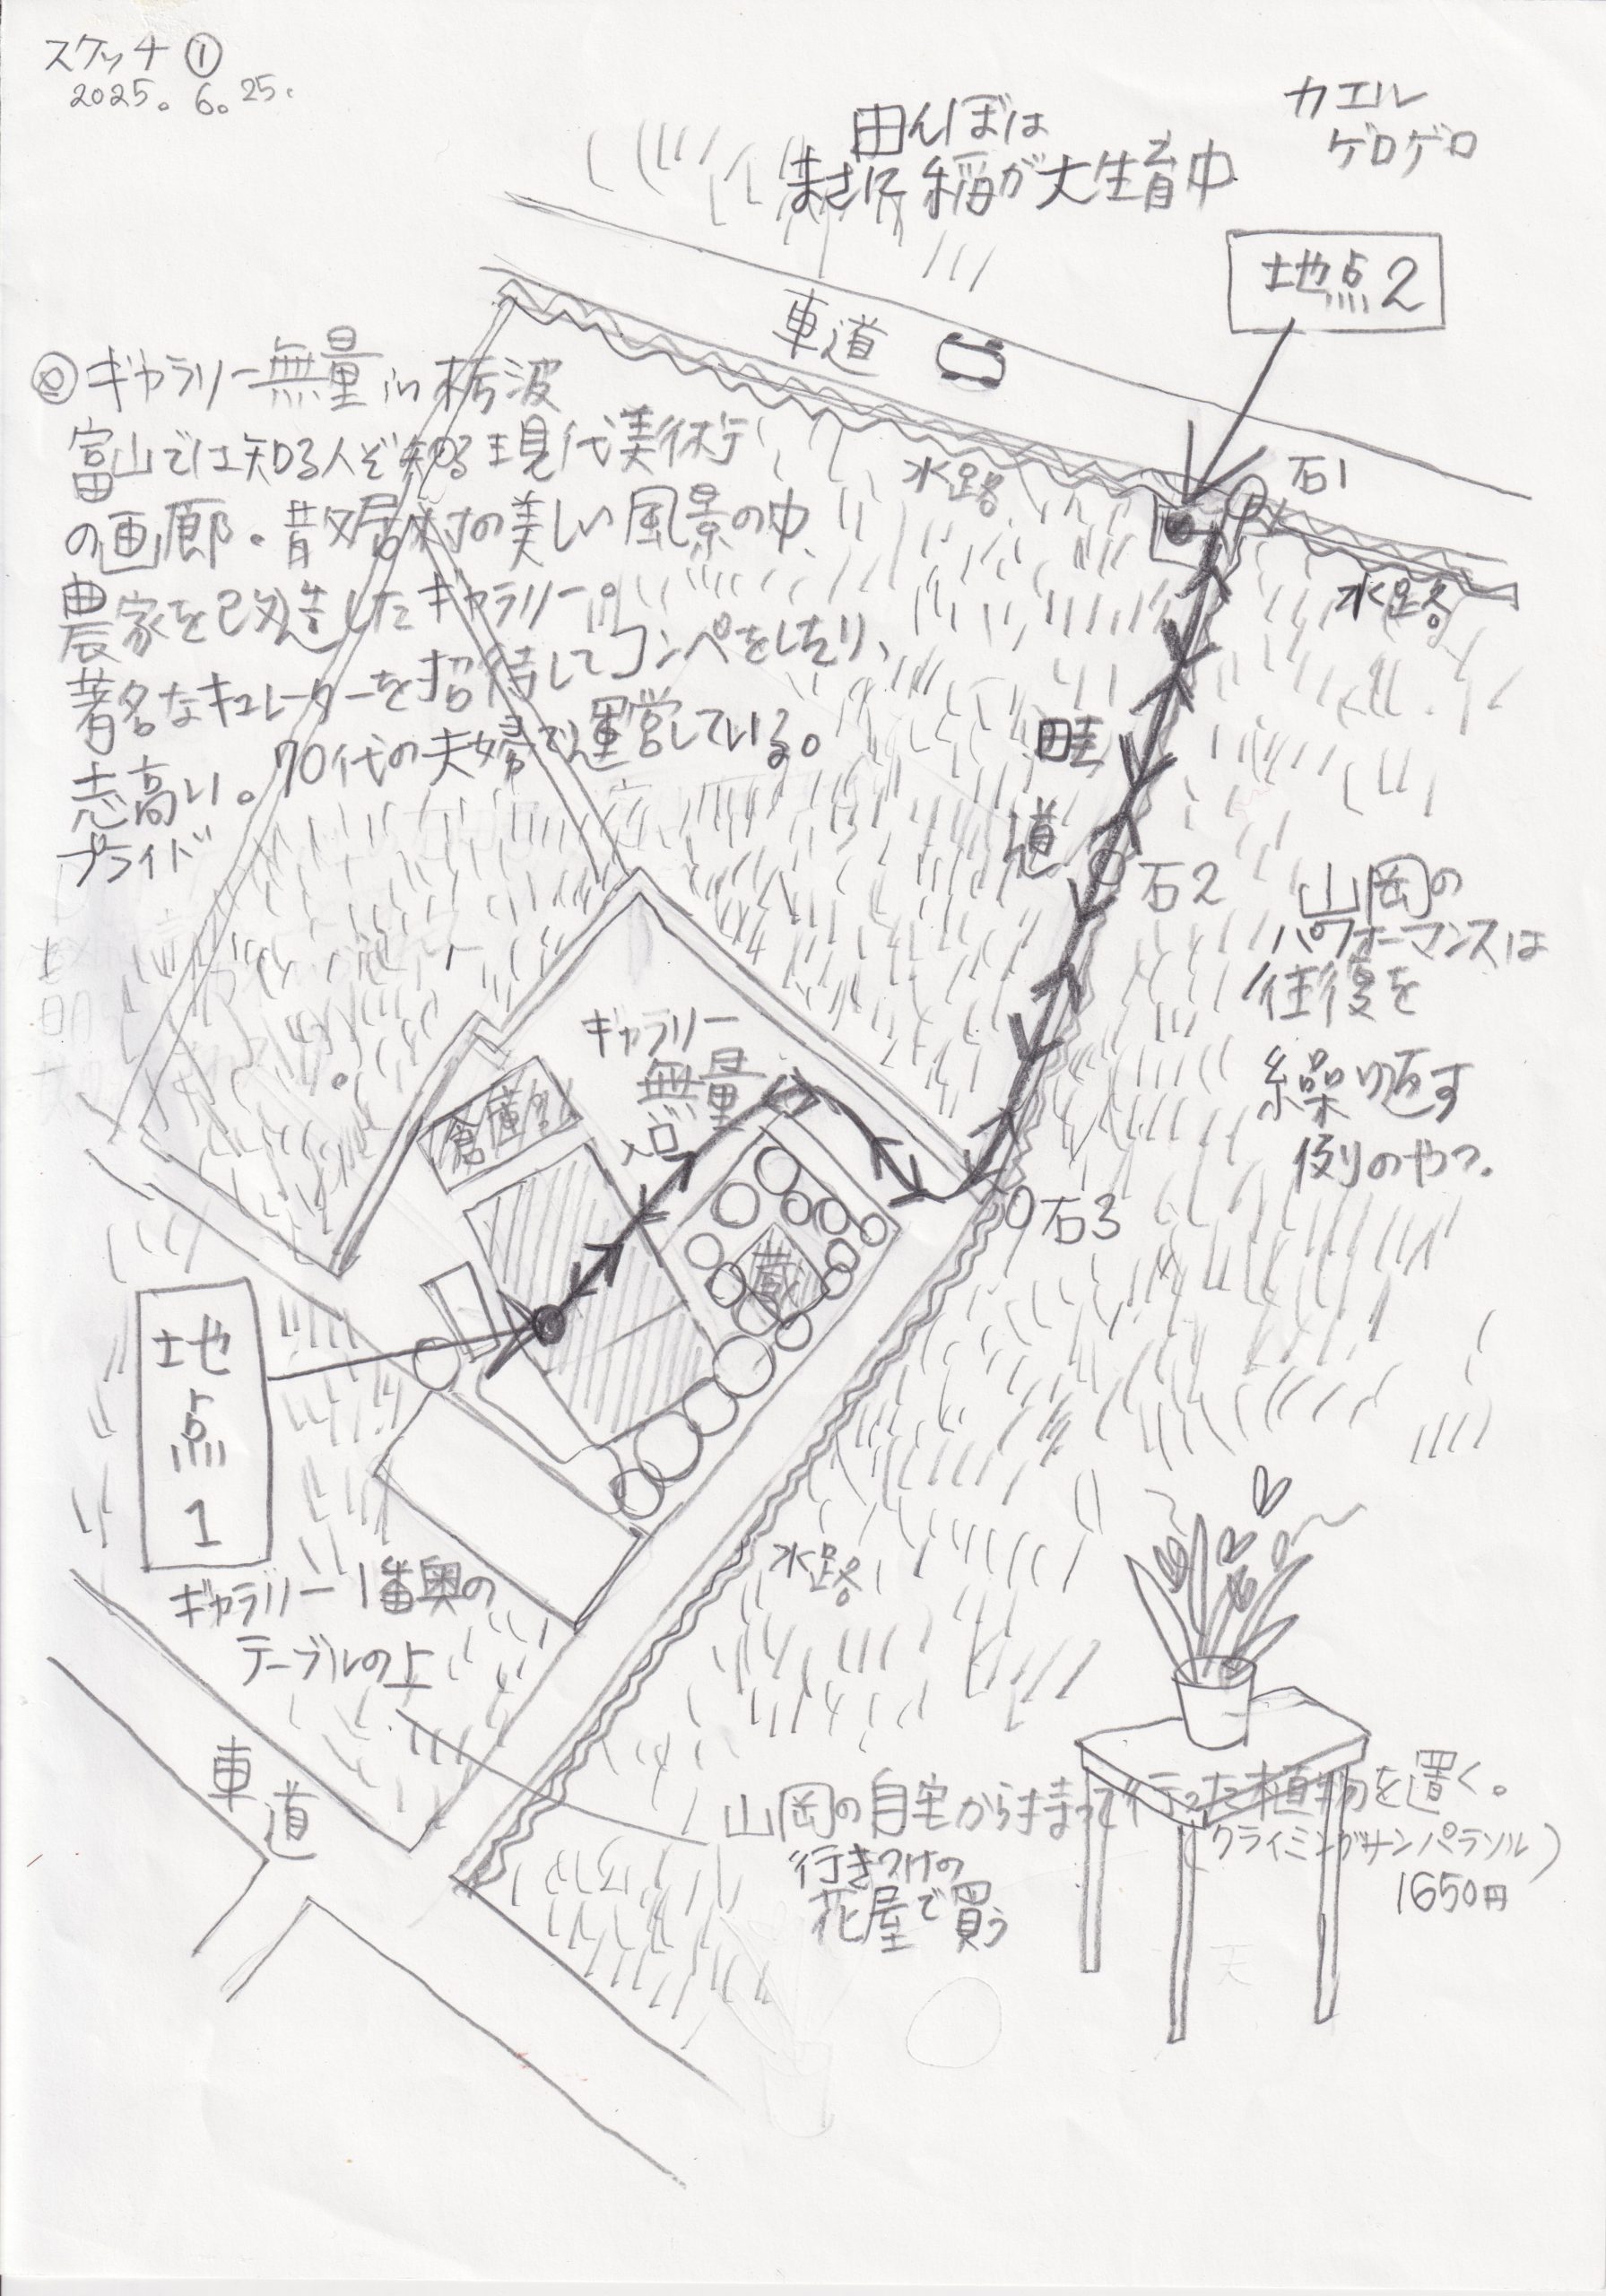 スケッチ①
2025. 6. 25.
カエル
ゲロゲロ
田んぼは
まさに稲が大生育中
地点2
車道
◎ギャラリー無量 in 栃波
富山では知る人ぞ知る現代美術
の画廊。散居村の美しい風景の中、
農家を改造したギャラリー。
著名なキュレーターを招待してコンペをしたり、
志高い。70代の夫婦で運営している。
プライド
水路
石1
水路
畦
道
石2
山岡の
パフォーマンスは
往復を
繰り返す
例のやつ.
ギャラリー
無量
入口
倉庫
蔵
石3
地
点
1
ギャラリー1番奥の
テーブルの上
水路
車
道
山岡の自宅から持って行った植物を置く。
(クライミングサンパラソル)
1650円
行きつけの
花屋で買う